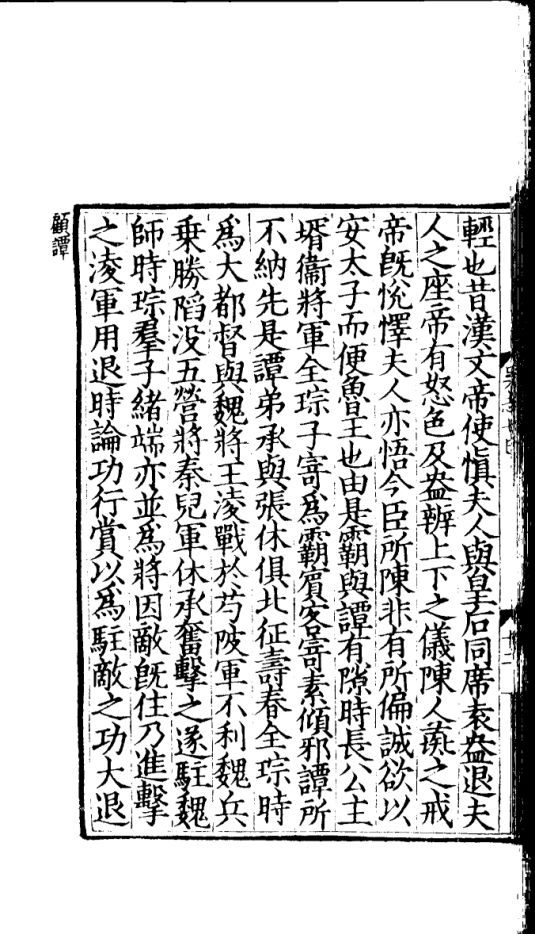 輕也昔漢文帝使慎夫人與皇后同席袁盎退夫
人之座帝有怒色及盎辨上下之儀陳人彘之戒
帝旣悅懌夫人亦悟今臣所陳非有所偏誠欲以
安太子而便魯王也由是霸與譚有隙時長公主
壻衞將軍全琮子寄爲霸賔客寄素傾邪譚所
不納先是譚弟承與張休俱北征壽春全琮時
爲大都督與魏將王淩戰於芍陂軍不利魏兵
乗勝陷没五營將秦兒軍休承奮擊之遂駐魏
師時琮羣子緒端亦並爲將因敵旣住乃進擊
之淩軍用退時論功行賞以爲駐敵之功大退
顧譚